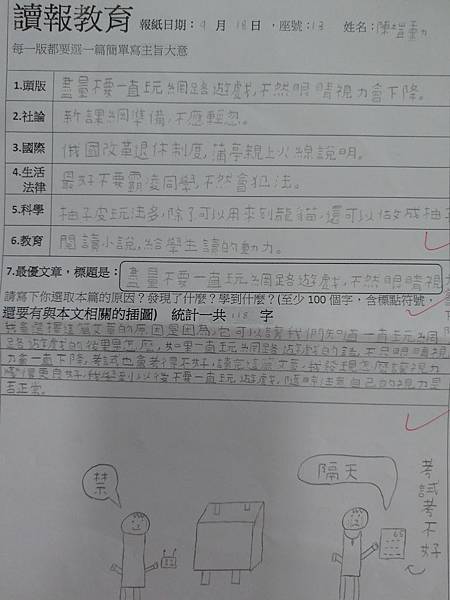 讀報教育 報紙日期：9 月 18 日，座號：13 姓名：陳
每一版都要選一篇簡單寫主旨大意
1.頭版 盡量不要一直玩網路遊戲，不然眼睛視力會下降。
2.社論 新課綱準備，不應輕忽。
3.國際 俄國改革退休制度，蒲亭親上火線說明。
4.生活法律 最好不要霸凌同學，不然會犯法。
5.科學 柚子皮玩法多，除了可以用來刻龍貓，還可以做成柚子
6.教育 閱讀小說，給學生讀的動力。
7.最優文章，標題是： 盡量不要一直玩網路遊戲，不然眼睛視
請寫下你選取本篇的原因？發現了什麼？學到什麼？(至少 100 個字，含標點符號，
還要有與本文相關的插圖) 統計一共 118 字
我會選擇這篇文章的原因是因為，它可以讓我們知道一直玩網
路遊戲的後果是怎麼，如果一直玩網路遊戲的話，不只眼睛視
力會一直下降，考試也會考得不好，讀完這篇文章，我發現怎麼讓視力
變得更良好，我學到以後不要一直玩遊戲，隨時注意自己的視力是
否正常。
禁
隔天
考試考不好
65